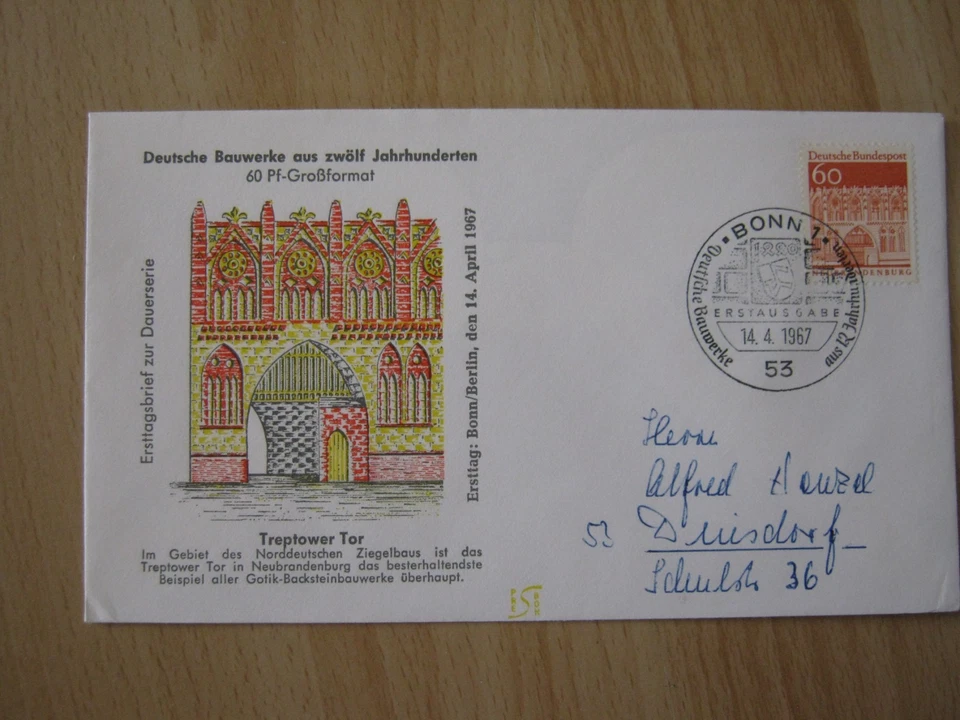 Deutsche Bauwerke aus zwölf Jahrhunderten
60 Pf-Großformat
Ersttagsbrief zur Dauerserie
Ersttag: Bonn/Berlin, den 14. April 1967
Treptower Tor
Im Gebiet des Norddeutschen Ziegelbaus ist das
Treptower Tor in Neubrandenburg das besterhaltendste
Beispiel aller Gotik-Backsteinbauwerke überhaupt.
Deutsche Bundespost
60
DENBURG
BONN 1
Deutsche Bauwerke aus 12 Jahrhunderten
ERSTAUSGABE
14. 4. 1967
53
Herrn
Alfred
53
Schulstr 36